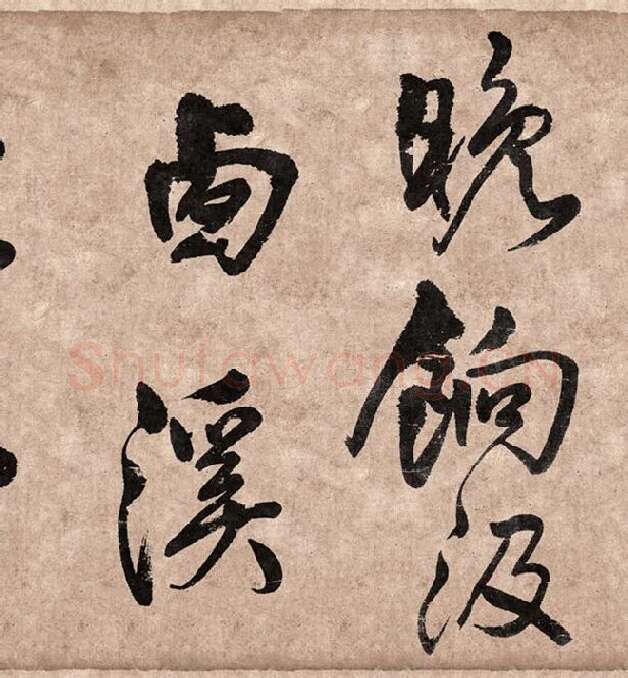 晚餉汲
西溪
Shufawang.CN